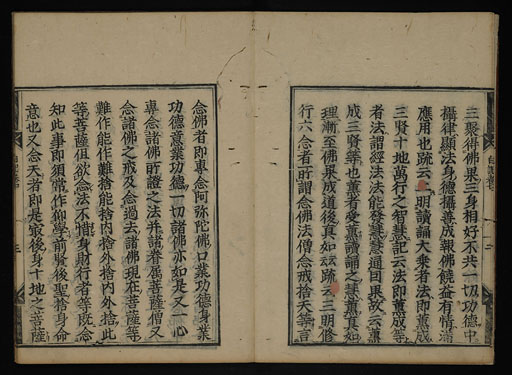 三聚得佛果三身相好不共一切功德中
攝律顯法身德攝善成報佛饒益有情滿
應用也疏云二明讀誦大乘者法即薰成
三賢十地萬行之智慧記云法即薰成等
者法謂經法法能發慧慧通因果故云薰
成三賢等也薰者受薰讀誦之慧薰真如
理漸至佛果成道後真如玆疏云三明修
行六念者所謂念佛法僧念戒捨天等言
念佛者即專念阿弥陀佛口業功德身業
功德意業功德一切諸佛亦如是又一心
專念諸佛所證之法并諸眷属菩薩僧又
念諸佛之戒及念過去諸佛現在菩薩等
難作能作難捨能捨内捨外捨内外捨此
等菩薩但欲念法不惜身財行者等既念
知此事即須常作仰學前賢後聖捨身命
意也又念天者即是冣後身十地之菩薩